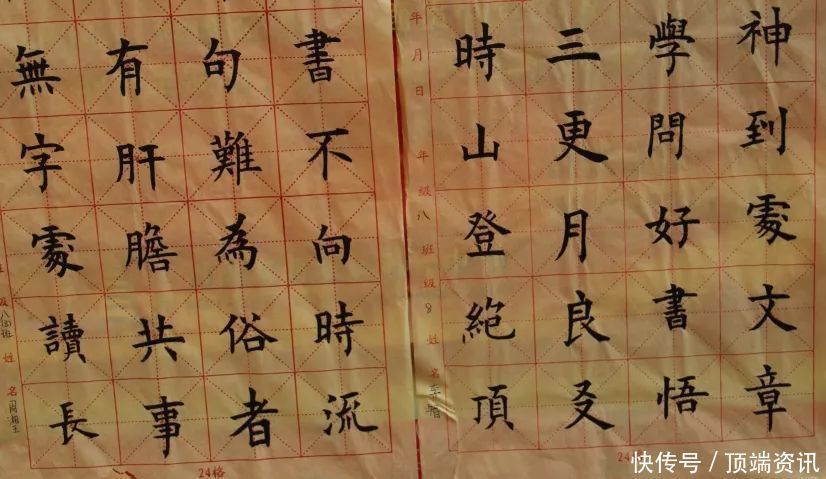 神到處文章
學問好書悟
三更月良友
時山登絶頂
年 月 日 年 级 八 班 级 8 姓 名
書不向時流
句難為俗者
有肝膽共事
無字處讀長
姓 名
24格
24
快传号 / 顶端资讯